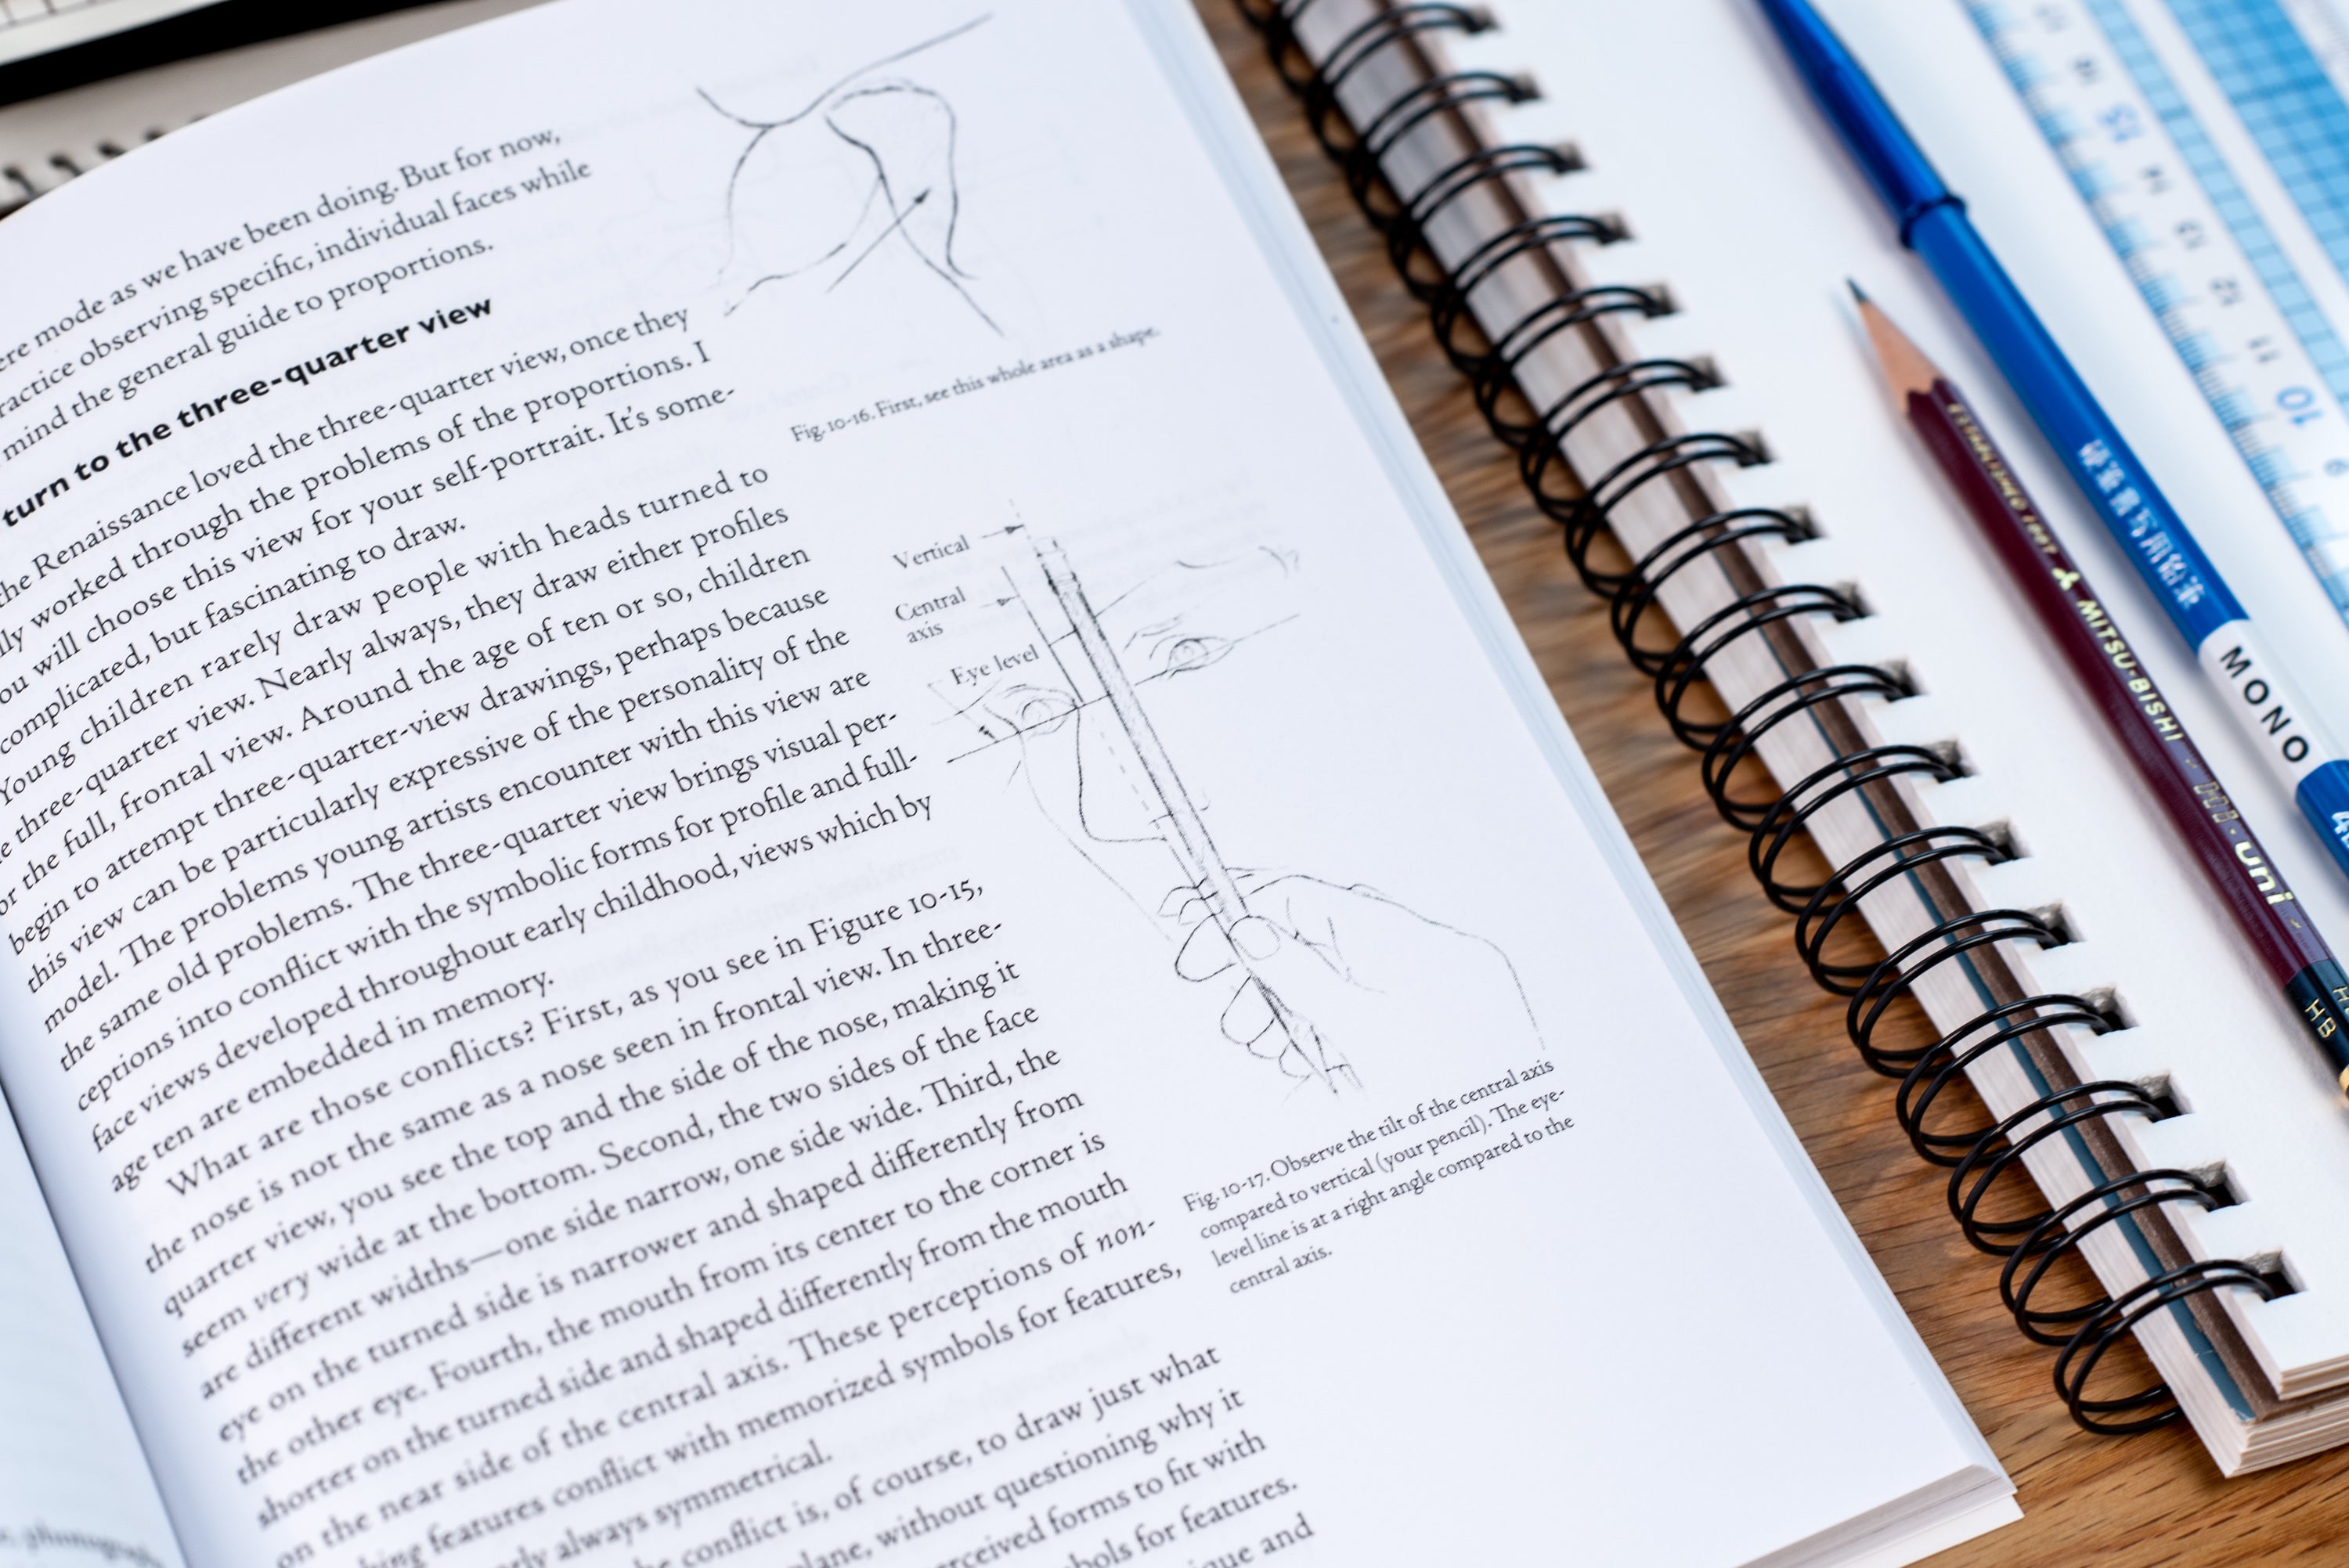 ere mode as we have been doing. But for now,
ractice observing specific, individual faces while
mind the general guide to proportions.
turn to the three-quarter view
the Renaissance loved the three-quarter view, once they
lly worked through the problems of the proportions. I
ou will choose this view for your self-portrait. It's some-
complicated, but fascinating to draw.
Young children rarely draw people with heads turned to
e three-quarter view. Nearly always, they draw either profiles
or the full, frontal view. Around the age of ten or so, children
begin to attempt three-quarter-view drawings, perhaps because
this view can be particularly expressive of the personality of the
model. The problems young artists encounter with this view are
the same old problems. The three-quarter view brings visual per-
ceptions into conflict with the symbolic forms for profile and full-
face views developed throughout early childhood, views which by
age ten are embedded in memory.
What are those conflicts? First, as you see in Figure 10-15,
the nose is not the same as a nose seen in frontal view. In three-
quarter view, you see the top and the side of the nose, making it
seem very wide at the bottom. Second, the two sides of the face
are different widths—one side narrow, one side wide. Third, the
eye on the turned side is narrower and shaped differently from
the other eye. Fourth, the mouth from its center to the corner is
shorter on the turned side and shaped differently from the mouth
on the near side of the central axis. These perceptions of non-
hing features conflict with memorized symbols for features,
rly always symmetrical.
he conflict is, of course, to draw just what
plane, without questioning why it
erceived forms to fit with
bols for features.
ique and
Fig. 10-16. First, see this whole area as a shape.
Vertical
Central
axis
Eye level
Fig. 10-17. Observe the tilt of the central axis
compared to vertical (your pencil). The eye-
level line is at a right angle compared to the
central axis.
MITSU-BISHI
uni
HB
MONO
15
14
13
12
11
10
9